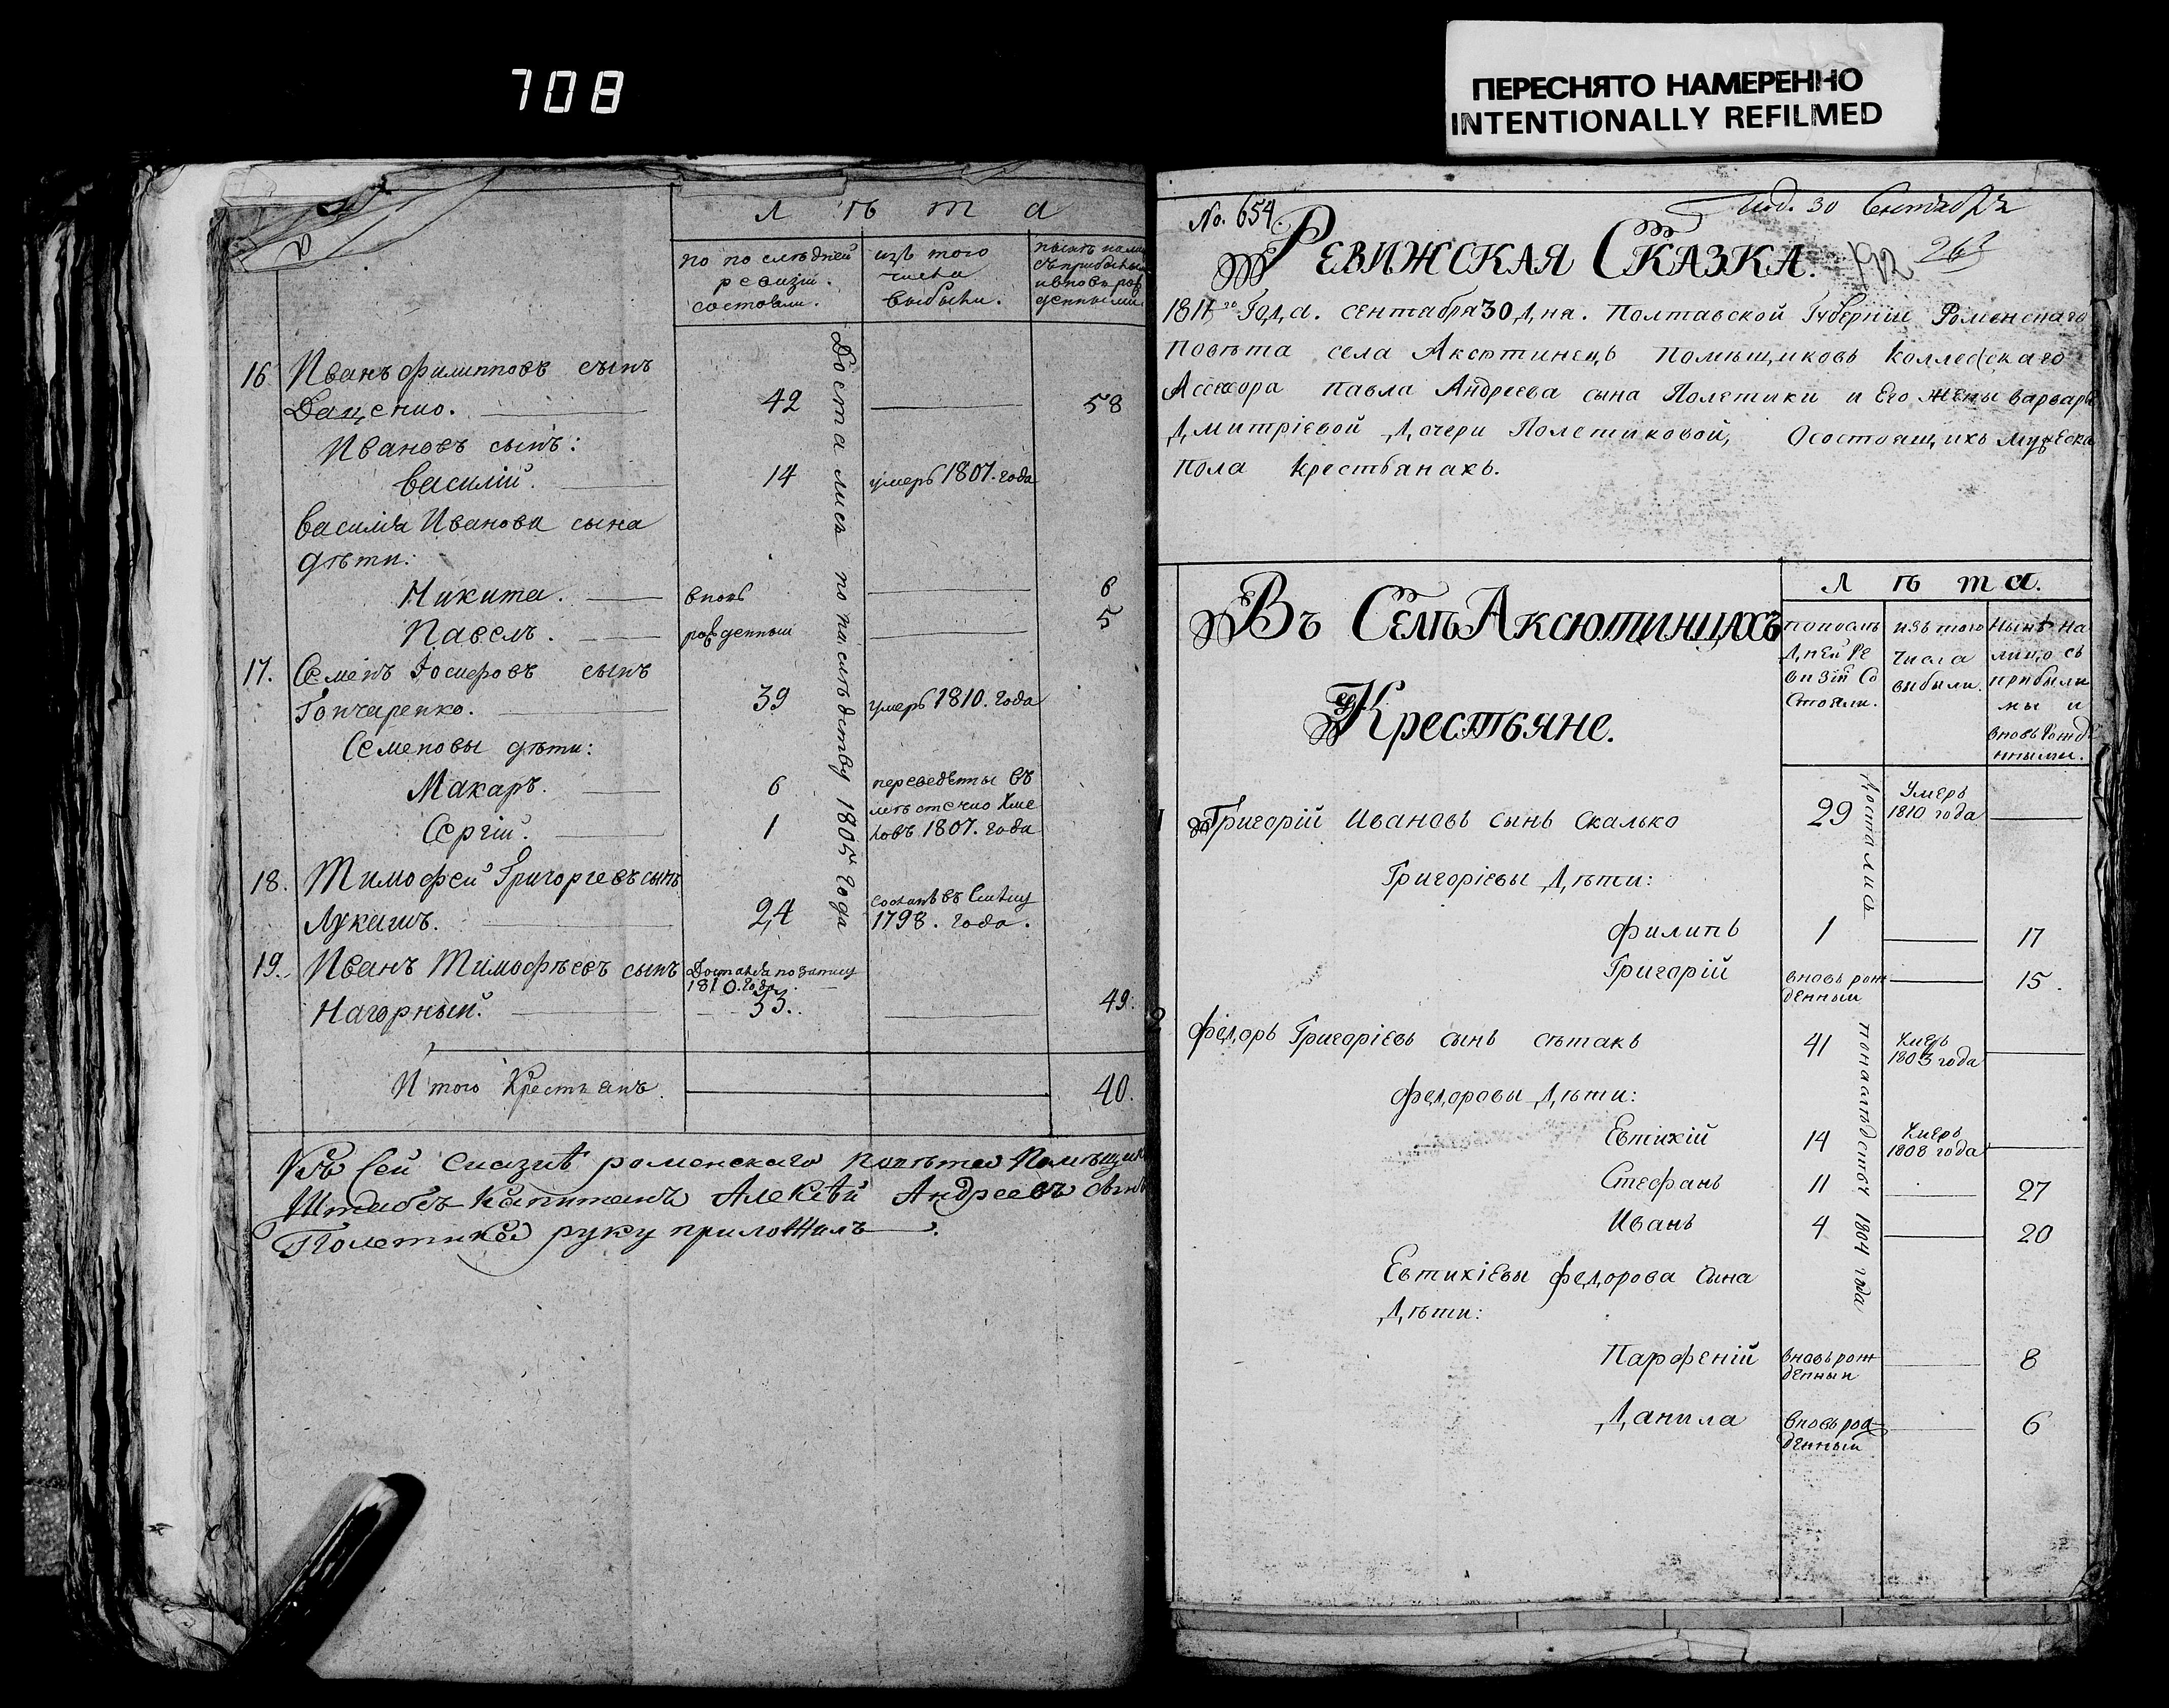 708
ПЕРЕСНЯТО НАМЕРЕННО
INTENTIONALLY REFILMED
Л ѣ т а
по послѣдней ревизіи состояли.
изъ того числа выбыли.
16. Иванъ Филипповъ сынъ
Даценко. 42 58
Ивановъ сынъ:
Василій. 14 умеръ 1807. года
Василія Иванова сына
дѣти:
Никита. вновь 6
Павелъ. рожденныи 5
17. Семенъ сынъ
Гончаренко. 39 умеръ 1810. года
Семеновы дѣти:
Макаръ. 6 переведены въ
Сергій. 1 мѣстечко Хмеловъ 1807. года
18. Тимофей Григорьевъ сынъ
Лукашъ. 24 1798. года.
19. Иванъ Тимофѣевъ сынъ
1810. года
Нагорный. 33. 49.
Достались по наслѣдству 1805 года
Итого Крестьянъ. 40.
Къ сей сказкѣ роменского повѣта Помѣщикъ
Штабсъ Капитанъ Алексѣй Андреевъ сынъ
Полетика руку приложилъ.
No. 654.
Под. 30 Сентября
РЕВИЖСКАЯ СКАЗКА.
1811го Года. сентабря 30 Дня. Полтавской Губерніи Роменскаго
Повѣта села Аксютинецъ Помѣщиковъ Коллежскаго
Асесора Павла Андреева сына Полетики и Его Жены Варвары
Дмитріевой Дочери Полетиковой, О состоящихъ Мужеска
Пола Крестьянахъ.
Въ Селѣ Аксютинцахъ
Крестьяне.
Л ѣ т а.
по послѣдней Ревизіи Состояли.
изъ того Числа выбыли.
Нынѣ На лицо съ прибылыми и вновь Рожденными.
1 Григорій Ивановъ Сынъ Скалько 29 Умеръ 1810 года
Григоріевы Дѣти:
Филипъ 1 17
Григорій вновь рожденный 15.
2 Федоръ Григоріевъ Сынъ Сѣтакъ 41 Умеръ 1803 года
Федоровы Дѣти:
Евтихій 14 Умеръ 1808 года
Стефанъ 11 27
Иванъ 4 20
Евтихіевы Федорова Сына
Дѣти:
Парфеній вновь рожденный 8
Данила вновь рожденный 6
Достались по наслѣдству 1804 года